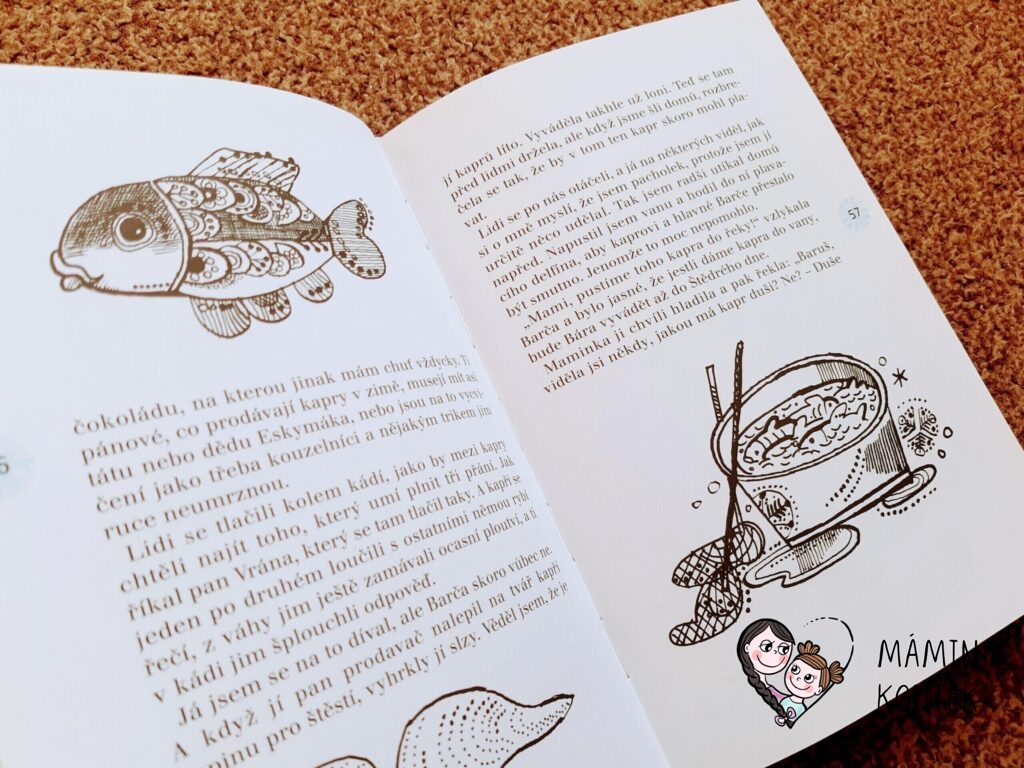 čokoládu, na kterou jinak mám chuť vždycky. Ti
pánové, co prodávají kapry v zimě, musejí mít asi
tátu nebo dědu Eskymáka, nebo jsou na to vycvi-
čení jako třeba kouzelníci a nějakým trikem jim
ruce neumrznou.
Lidi se tlačili kolem kádí, jako by mezi kapry
chtěli najít toho, který umí plnit tři přání. Jak
říkal pan Vrána, který se tam tlačil taky. A kapři se
jeden po druhém loučili s ostatními němou rybí
řečí, z váhy jim ještě zamávali ocasní ploutví, a ti
v kádi jim šplouchli odpověď.
Já jsem se na to díval, ale Barča skoro vůbec ne.
A když jí pan prodavač nalepil na tvář kapří
pinu pro štěstí, vyhrkly jí slzy. Věděl jsem, že je
jí kaprů líto. Vyváděla takhle už loni. Teď se tam
před lidmi držela, ale když jsme šli domů, rozbre-
čela se tak, že by v tom ten kapr skoro mohl pla-
vat.
Lidi se po nás otáčeli, a já na některých viděl, jak
si o mně myslí, že jsem pacholek, protože jsem jí
určitě něco udělal. Tak jsem radši utíkal domů
napřed. Napustil jsem vanu a hodil do ní plava-
cího delfína, aby kaprovi a hlavně Barče přestalo
být smutno. Jenomže to moc nepomohlo.
„Mami, pustíme toho kapra do řeky!“ vzlykala
Barča a bylo jasné, že jestli dáme kapra do vany,
bude Bára vyvádět až do Štědrého dne.
Maminka ji chvíli hladila a pak řekla: „Baruš,
viděla jsi někdy, jakou má kapr duši? Ne? – Duše
57
MÁMIN